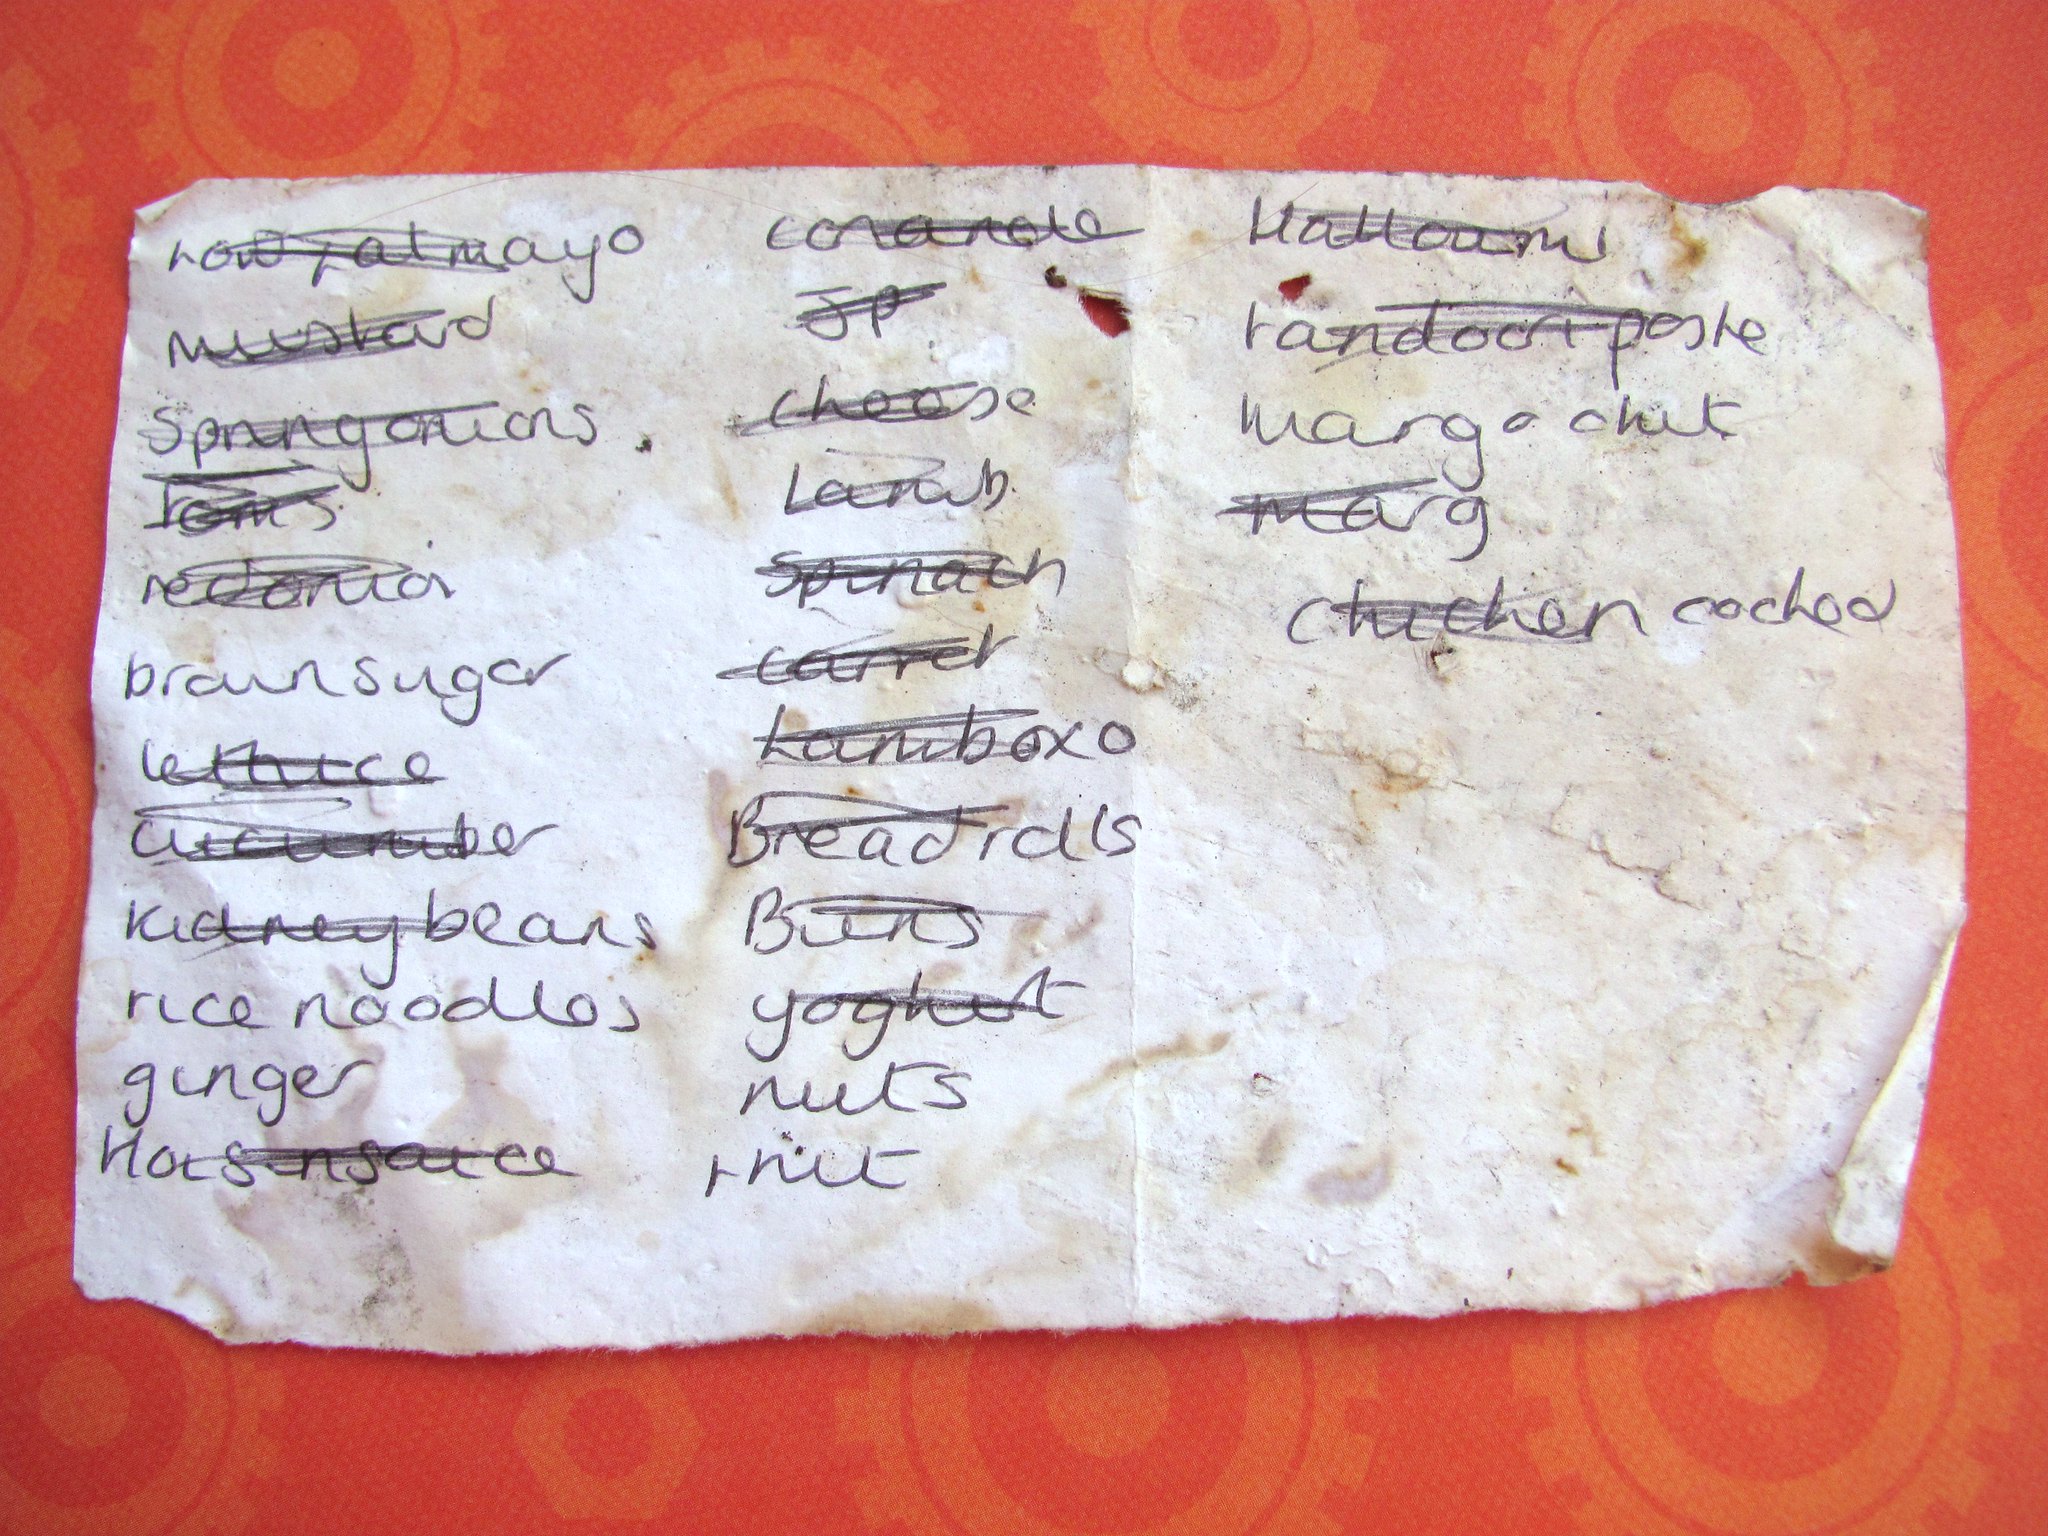 Low fat mayo
mustard
Spring onions
Toms
red onion
brown sugar
lettuce
cucumber
kidney beans
rice noodles
ginger
Hoisin sauce
JP
cheese
Lamb
Spinach
carrot
Lamb oxo
Bread rolls
Buns
yoghurt
nuts
fruit
Halloumi
tandoori paste
Mango chut
marg
chicken cooked